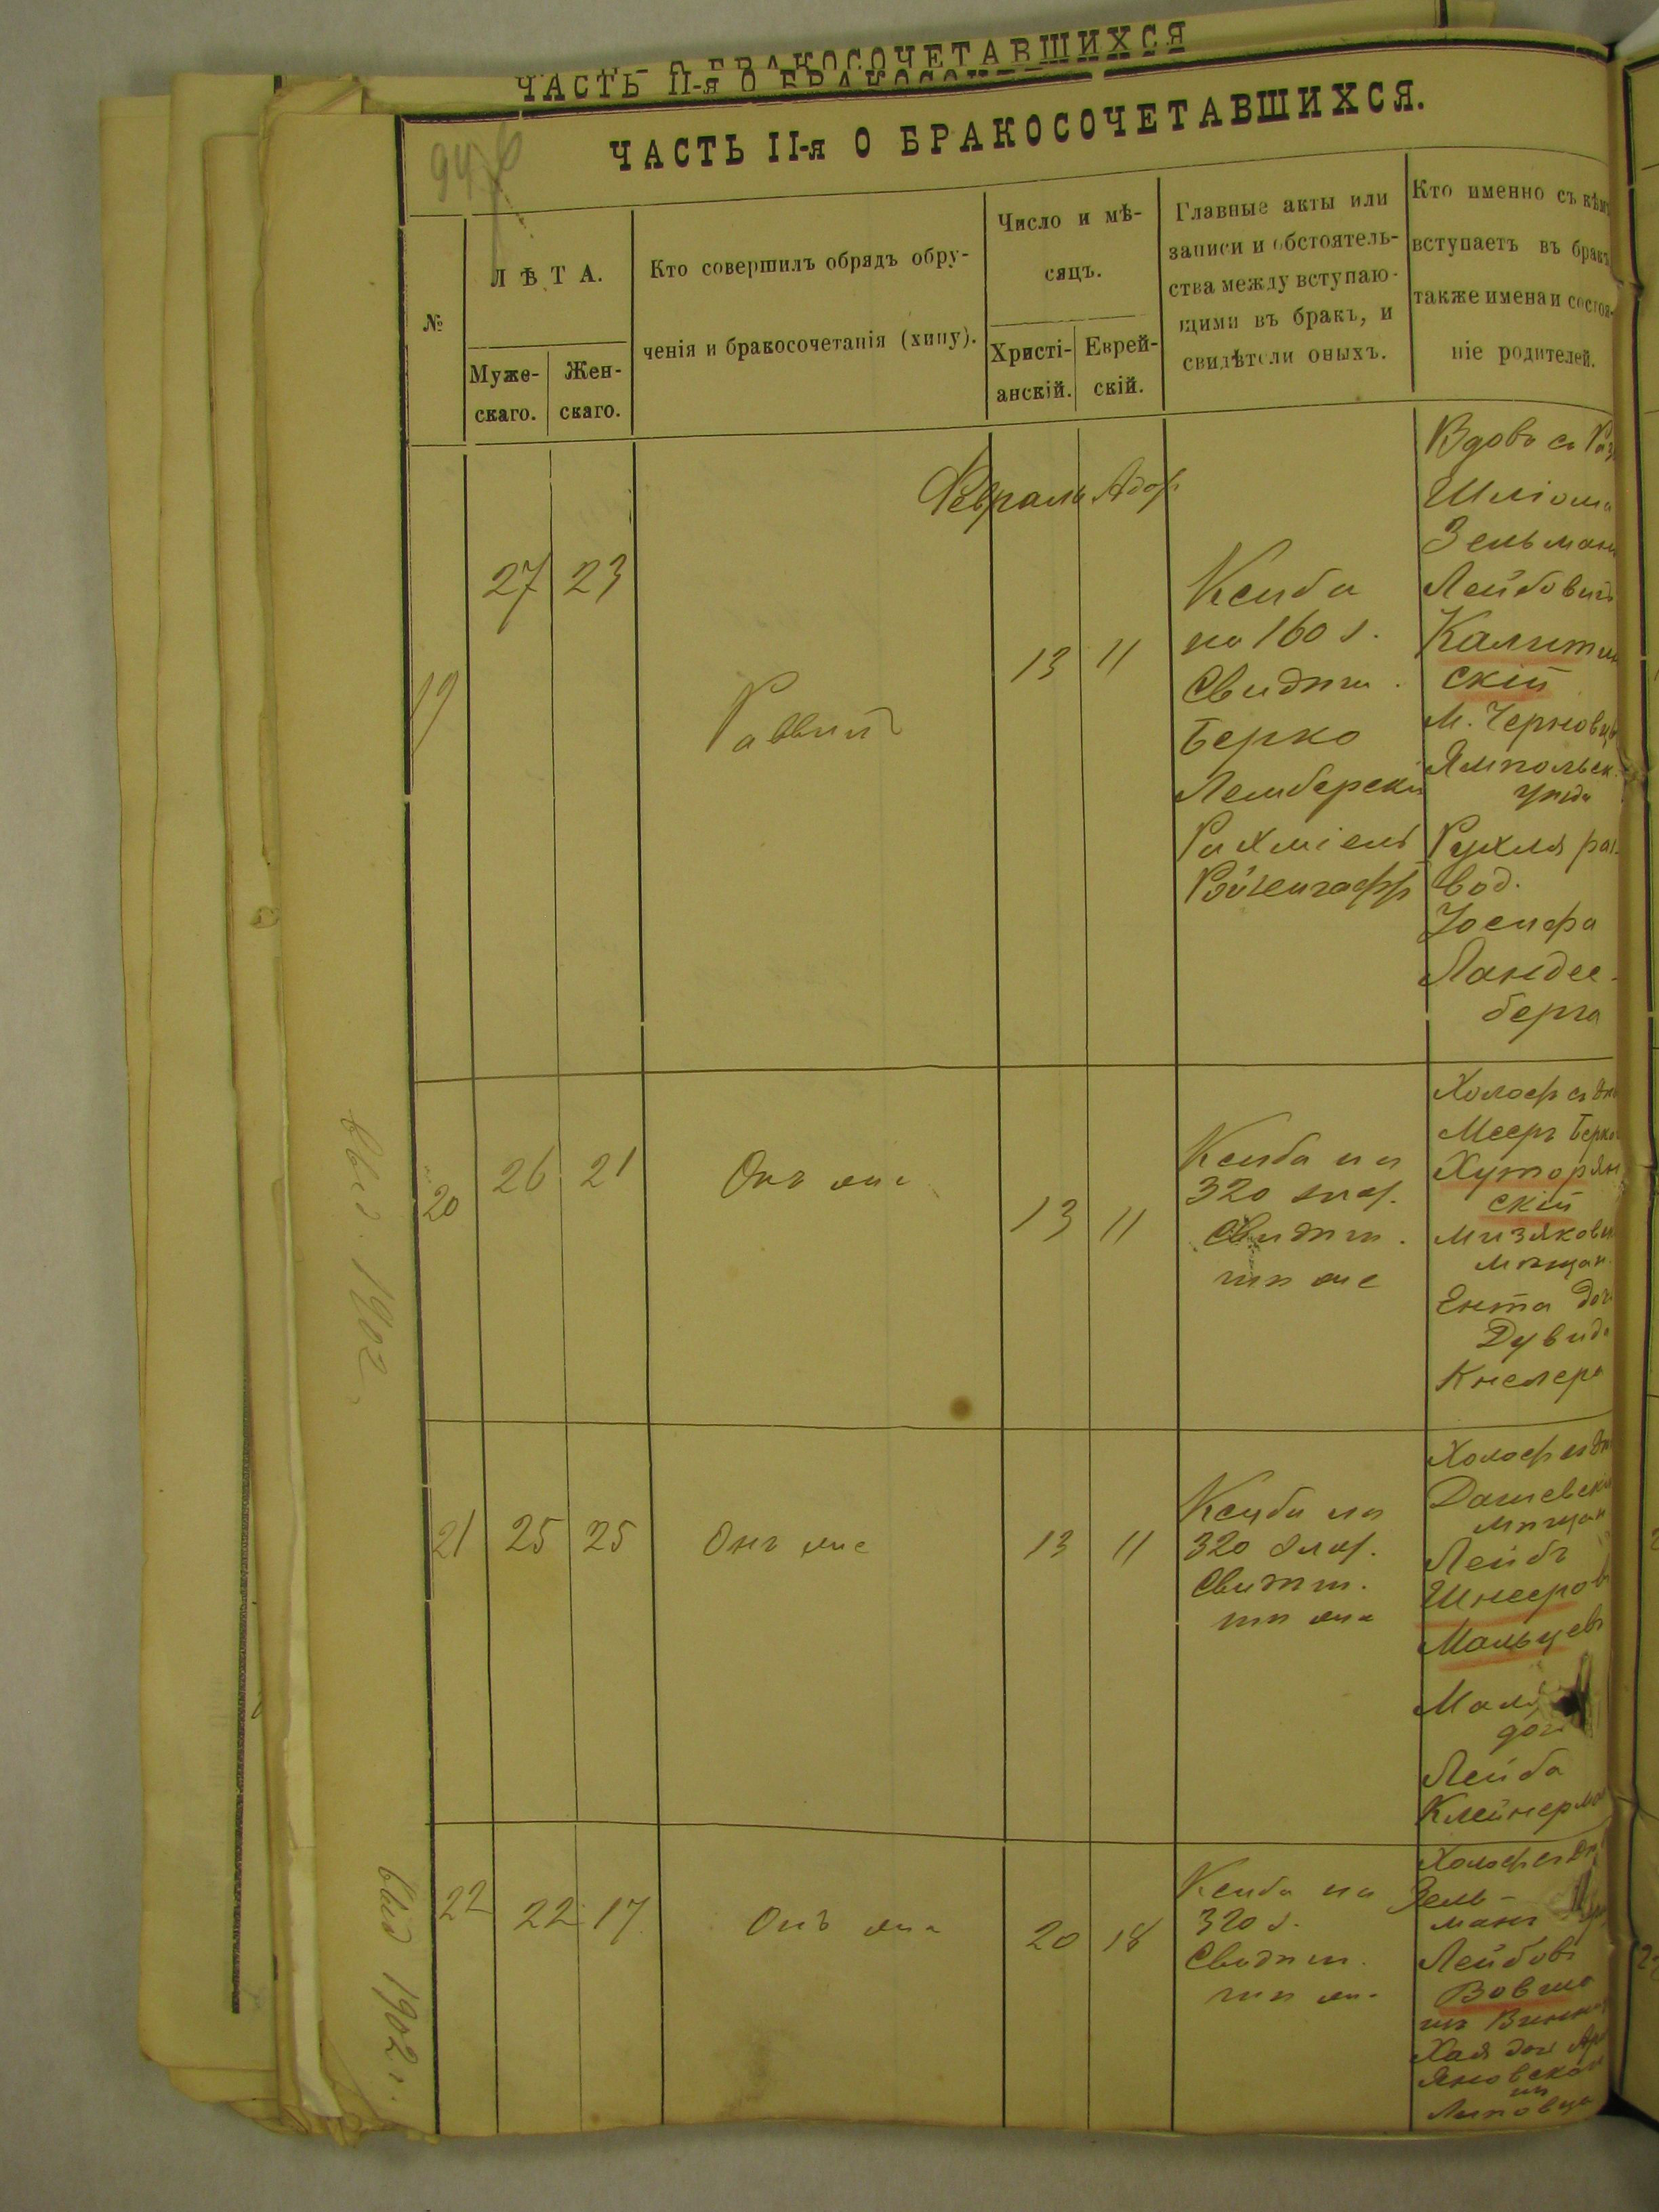 ЧАСТЬ II-я О БРАКОСОЧЕТАВШИХСЯ.
№
ЛѢТА.
Муже-
скаго.
Жен-
скаго.
Кто совершилъ обрядъ обру-
ченія и бракосочетанія (хипу).
Число и мѣ-
сяцъ.
Христі-
анскій.
Еврей-
скій.
Главные акты или
записи и обстоятель-
ства между вступаю-
щими въ бракъ, и
свидѣтели оныхъ.
Кто именно съ кѣмъ
вступаетъ въ бракъ
также имена и состоя-
ніе родителей.
Февраль Адаръ
19
27
23
Раввинъ
13
11
Ксиба
на 160 з.
Свидѣт.
Берко
Лембергскі
Рахміель
Вдов съ Раз
Шліома
Зельманъ
Лейбовичъ
Калит
скій
М. Черновц
Ямпольск.
уѣзда
Рухля раз
вод.
Іосифа
Ландес-
берга
20
26
21
Онъ же
13
11
Ксиба на
320 злот.
Свидѣт.
тѣ же
Холост съ дѣ
Мееръ Берко
Хуторян
скій
Мизяков
мѣщан.
Ента доч
Дувида
Кнелера
21
25
25
Онъ же
13
11
Ксиба на
320 злот.
Свидѣт.
тѣ же
Холост съ дѣ
Дашевскі
мѣщан
Лейбъ
Шнееров
Мальцевъ
Мал
доч
Лейба
Клейнерма
22
22
17
Онъ же
20
18
Ксиба на
320 з.
Свидѣт.
тѣ же
Холост съ дѣ
Зель-
манъ
Лейбовъ
Вовша
из Винни
Хая доч
Яновска
из
Липовца
вид. 1902
вид 1902 г.